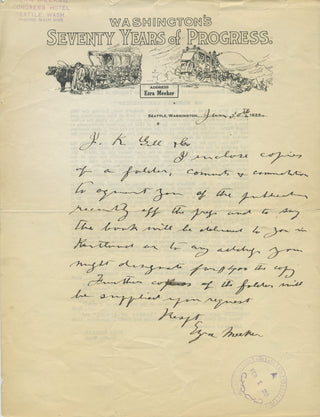 CONGRESS HOTEL
SEATTLE, WASH.
WASHINGTON'S
SEVENTY YEARS of PROGRESS.
ADDRESS
Ezra Meeker
SEATTLE, WASHINGTON,
J. K. Gill & Co
I enclose copies
of a folder,
to you of the publication
recently off the press and to say
the book will be delivered to you in
Portland or to any address you
might designate for the copy
Further copies of the folder will
be supplied upon request
Respt
Ezra Meeker